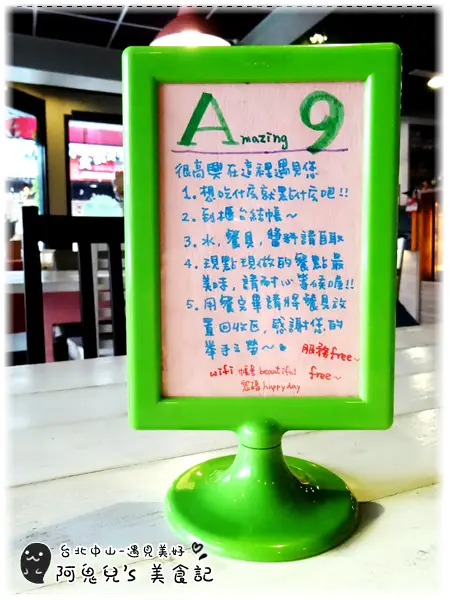 Amazing 9
很高興在這裡遇見您
1. 想吃什麼就點什麼吧!!
2. 到櫃台結帳~
3. 水,餐具,醬料請自取
4. 現點現做的餐點最
美味,請耐心等候喔!!
5. 用餐完畢請將餐具放
置回收區,感謝您的
舉手之勞~
服務free~
wifi 帳号 beautiful free~
密碼 happyday
台北中山-遇見美好
阿鬼兒's 美食記